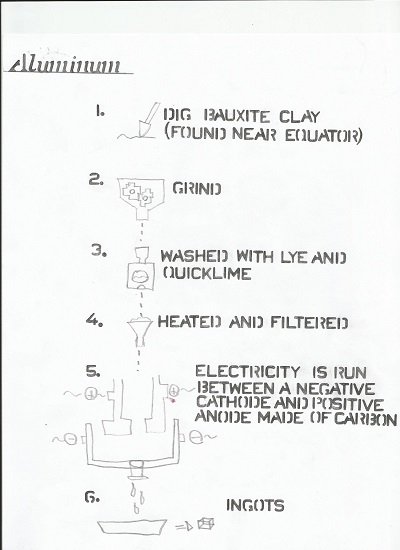 Aluminum
1. DIG BAUXITE CLAY
(FOUND NEAR EQUATOR)
2. GRIND
3. WASHED WITH LYE AND
QUICKLIME
4. HEATED AND FILTERED
5. ELECTRICITY IS RUN
BETWEEN A NEGATIVE
CATHODE AND POSITIVE
ANODE MADE OF CARBON
+ +
- -
6. INGOTS